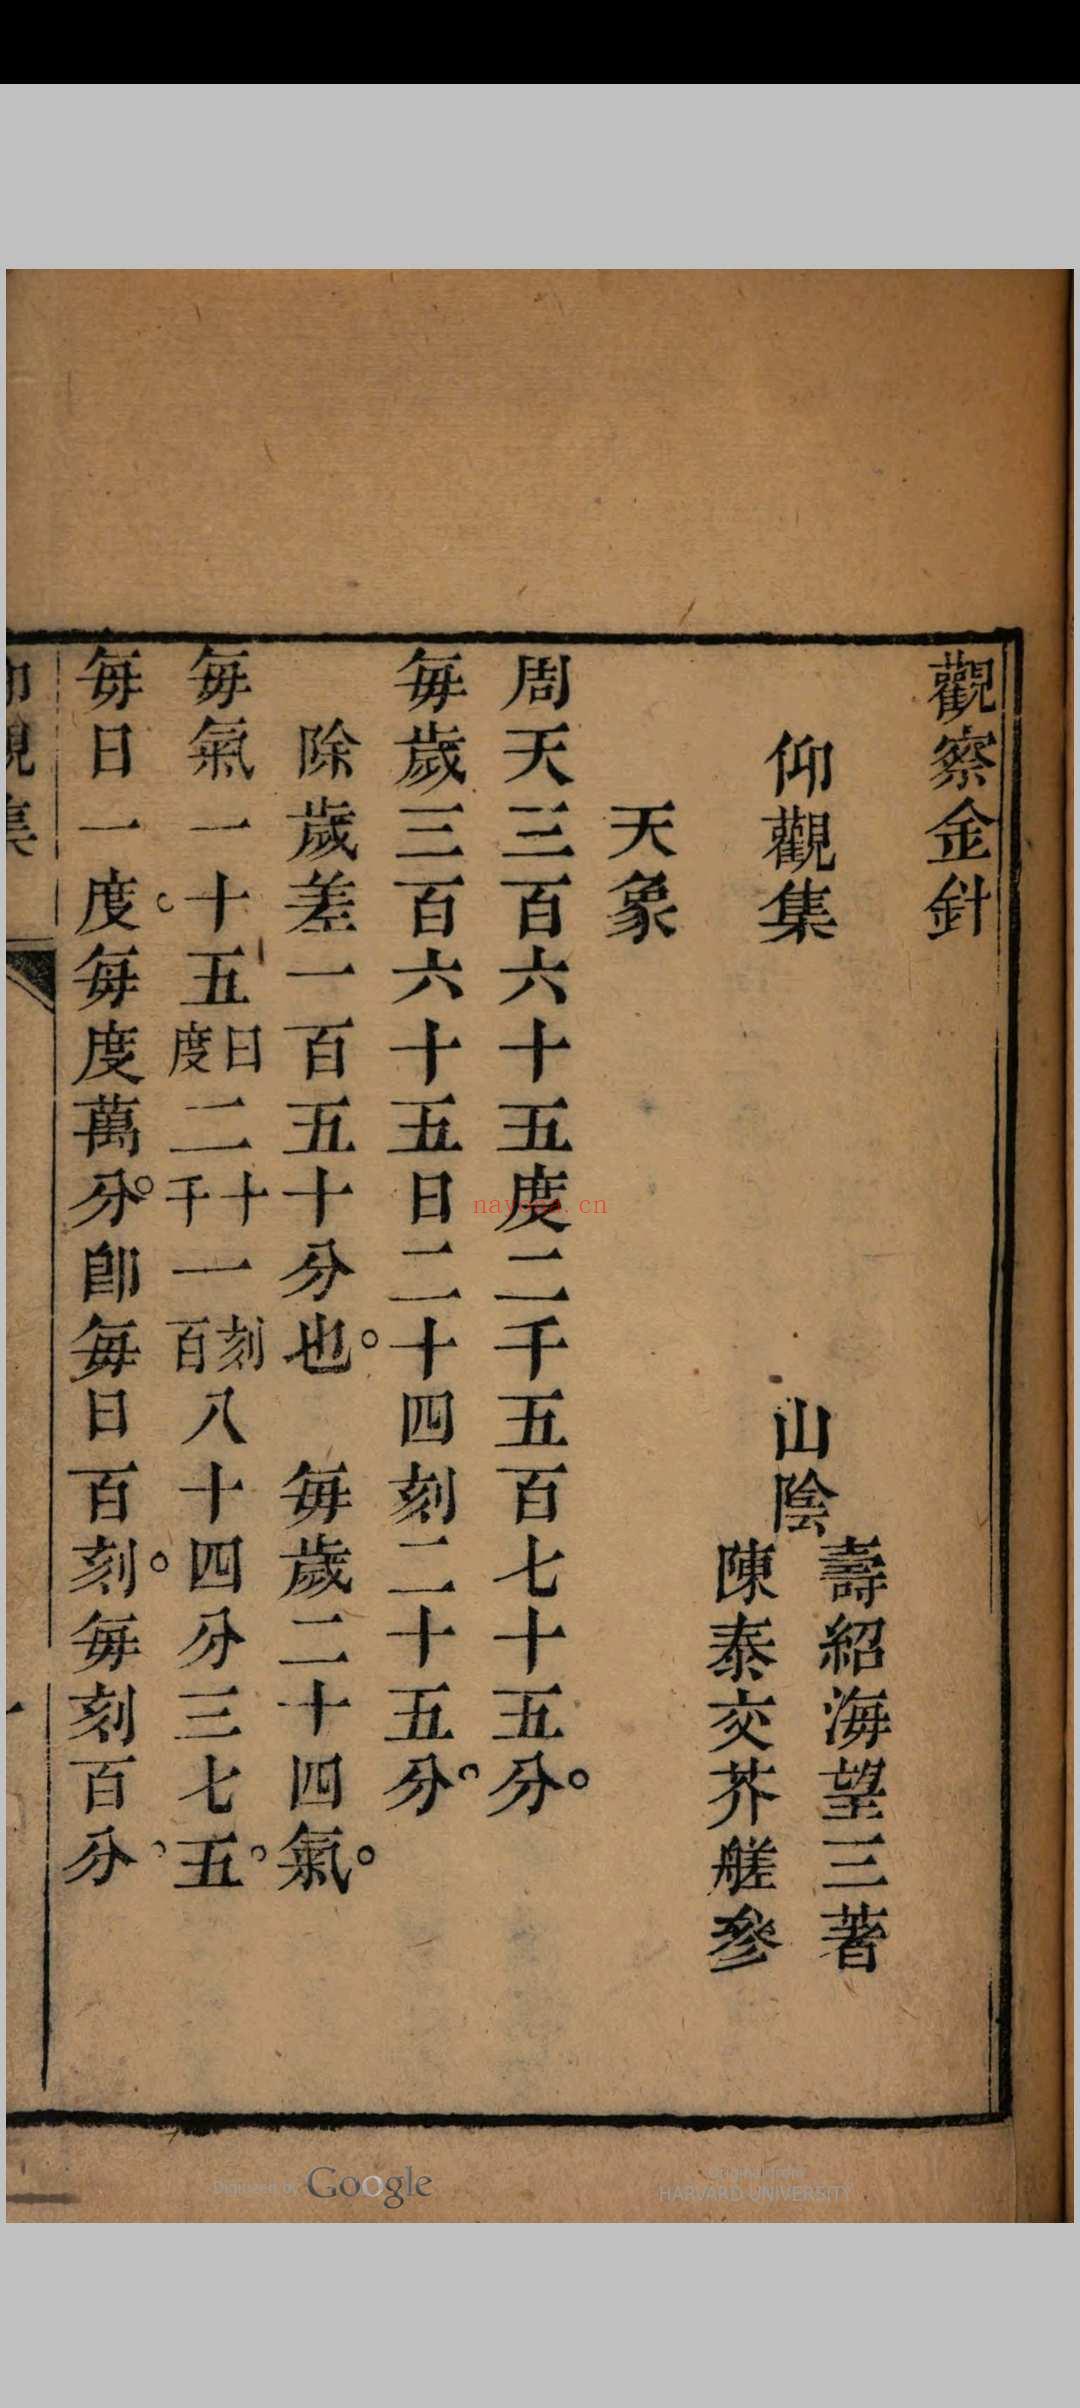 觀察金針
仰觀集
山陰
壽紹海望三著
陳泰交芥艖參
天象
周天三百六十五度二千五百七十五分。
每歲三百六十五日二十四刻二十五分。
除歲差一百五十分也。 每歲二十四氣。
每氣一十五日度二十千一刻百八十四分三七五。
每日一度。每度萬分。卽每日百刻。每刻百分。
仰觀集
一
nayona.cn
Digitized by Google
Original from
HARVARD UNIVERSITY